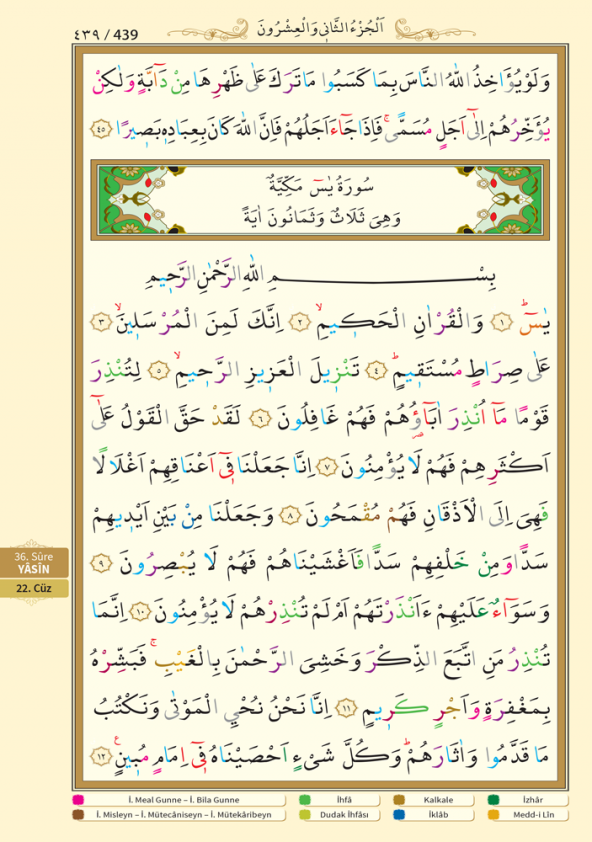 ٤٣٩ / 439
اَلْجُزْءُ الثَّانِي وَالْعِشْرُونَ
وَلَوْ يُؤَاخِذُ اللّٰهُ النَّاسَ بِمَا كَسَبُوا مَا تَرَكَ عَلٰى ظَهْرِهَا مِنْ دَٓابَّةٍ وَلٰكِنْ
يُؤَخِّرُهُمْ اِلٰٓى اَجَلٍ مُسَمًّىۚ فَاِذَا جَٓاءَ اَجَلُهُمْ فَاِنَّ اللّٰهَ كَانَ بِعِبَادِه۪ بَص۪يرًا ﴿٤٥﴾
سُورَةُ يٰسٓ مَكِّيَّةٌ
وَهِيَ ثَلَاثٌ وَثَمَانُونَ اٰيَةً
بِسْمِ اللّٰهِ الرَّحْمٰنِ الرَّح۪يمِ
يٰسٓۜ ﴿١﴾ وَالْقُرْاٰنِ الْحَك۪يمِۙ ﴿٢﴾ اِنَّكَ لَمِنَ الْمُرْسَل۪ينَۙ ﴿٣﴾
عَلٰى صِرَاطٍ مُسْتَق۪يمٍۜ ﴿٤﴾ تَنْز۪يلَ الْعَز۪يزِ الرَّح۪يمِۙ ﴿٥﴾ لِتُنْذِرَ
قَوْمًا مَٓا اُنْذِرَ اٰبَٓاؤُ۬هُمْ فَهُمْ غَافِلُونَ ﴿٦﴾ لَقَدْ حَقَّ الْقَوْلُ عَلٰٓى
اَكْثَرِهِمْ فَهُمْ لَا يُؤْمِنُونَ ﴿٧﴾ اِنَّا جَعَلْنَا ف۪ٓي اَعْنَاقِهِمْ اَغْلَالًا
فَهِيَ اِلَى الْاَذْقَانِ فَهُمْ مُقْمَحُونَ ﴿٨﴾ وَجَعَلْنَا مِنْ بَيْنِ اَيْد۪يهِمْ
سَدًّا وَمِنْ خَلْفِهِمْ سَدًّا فَاَغْشَيْنَاهُمْ فَهُمْ لَا يُبْصِرُونَ ﴿٩﴾
وَسَوَٓاءٌ عَلَيْهِمْ ءَاَنْذَرْتَهُمْ اَمْ لَمْ تُنْذِرْهُمْ لَا يُؤْمِنُونَ ﴿١٠﴾ اِنَّمَا
تُنْذِرُ مَنِ اتَّبَعَ الذِّكْرَ وَخَشِيَ الرَّحْمٰنَ بِالْغَيْبِۚ فَبَشِّرْهُ
بِمَغْفِرَةٍ وَاَجْرٍ كَر۪يمٍ ﴿١١﴾ اِنَّا نَحْنُ نُحْيِ الْمَوْتٰى وَنَكْتُبُ
مَا قَدَّمُوا وَاٰثَارَهُمْۜ وَكُلَّ شَيْءٍ اَحْصَيْنَاهُ ف۪ٓي اِمَامٍ مُب۪ينٍ۟ ﴿١٢﴾
36. Sûre
YÂSÎN
22. Cüz
İ. Meal Gunne – İ. Bila Gunne İhfâ Kalkale İzhâr
İ. Misleyn – İ. Mütecâniseyn – İ. Mütekâribeyn Dudak İhfâsı İklâb Medd-i Lîn